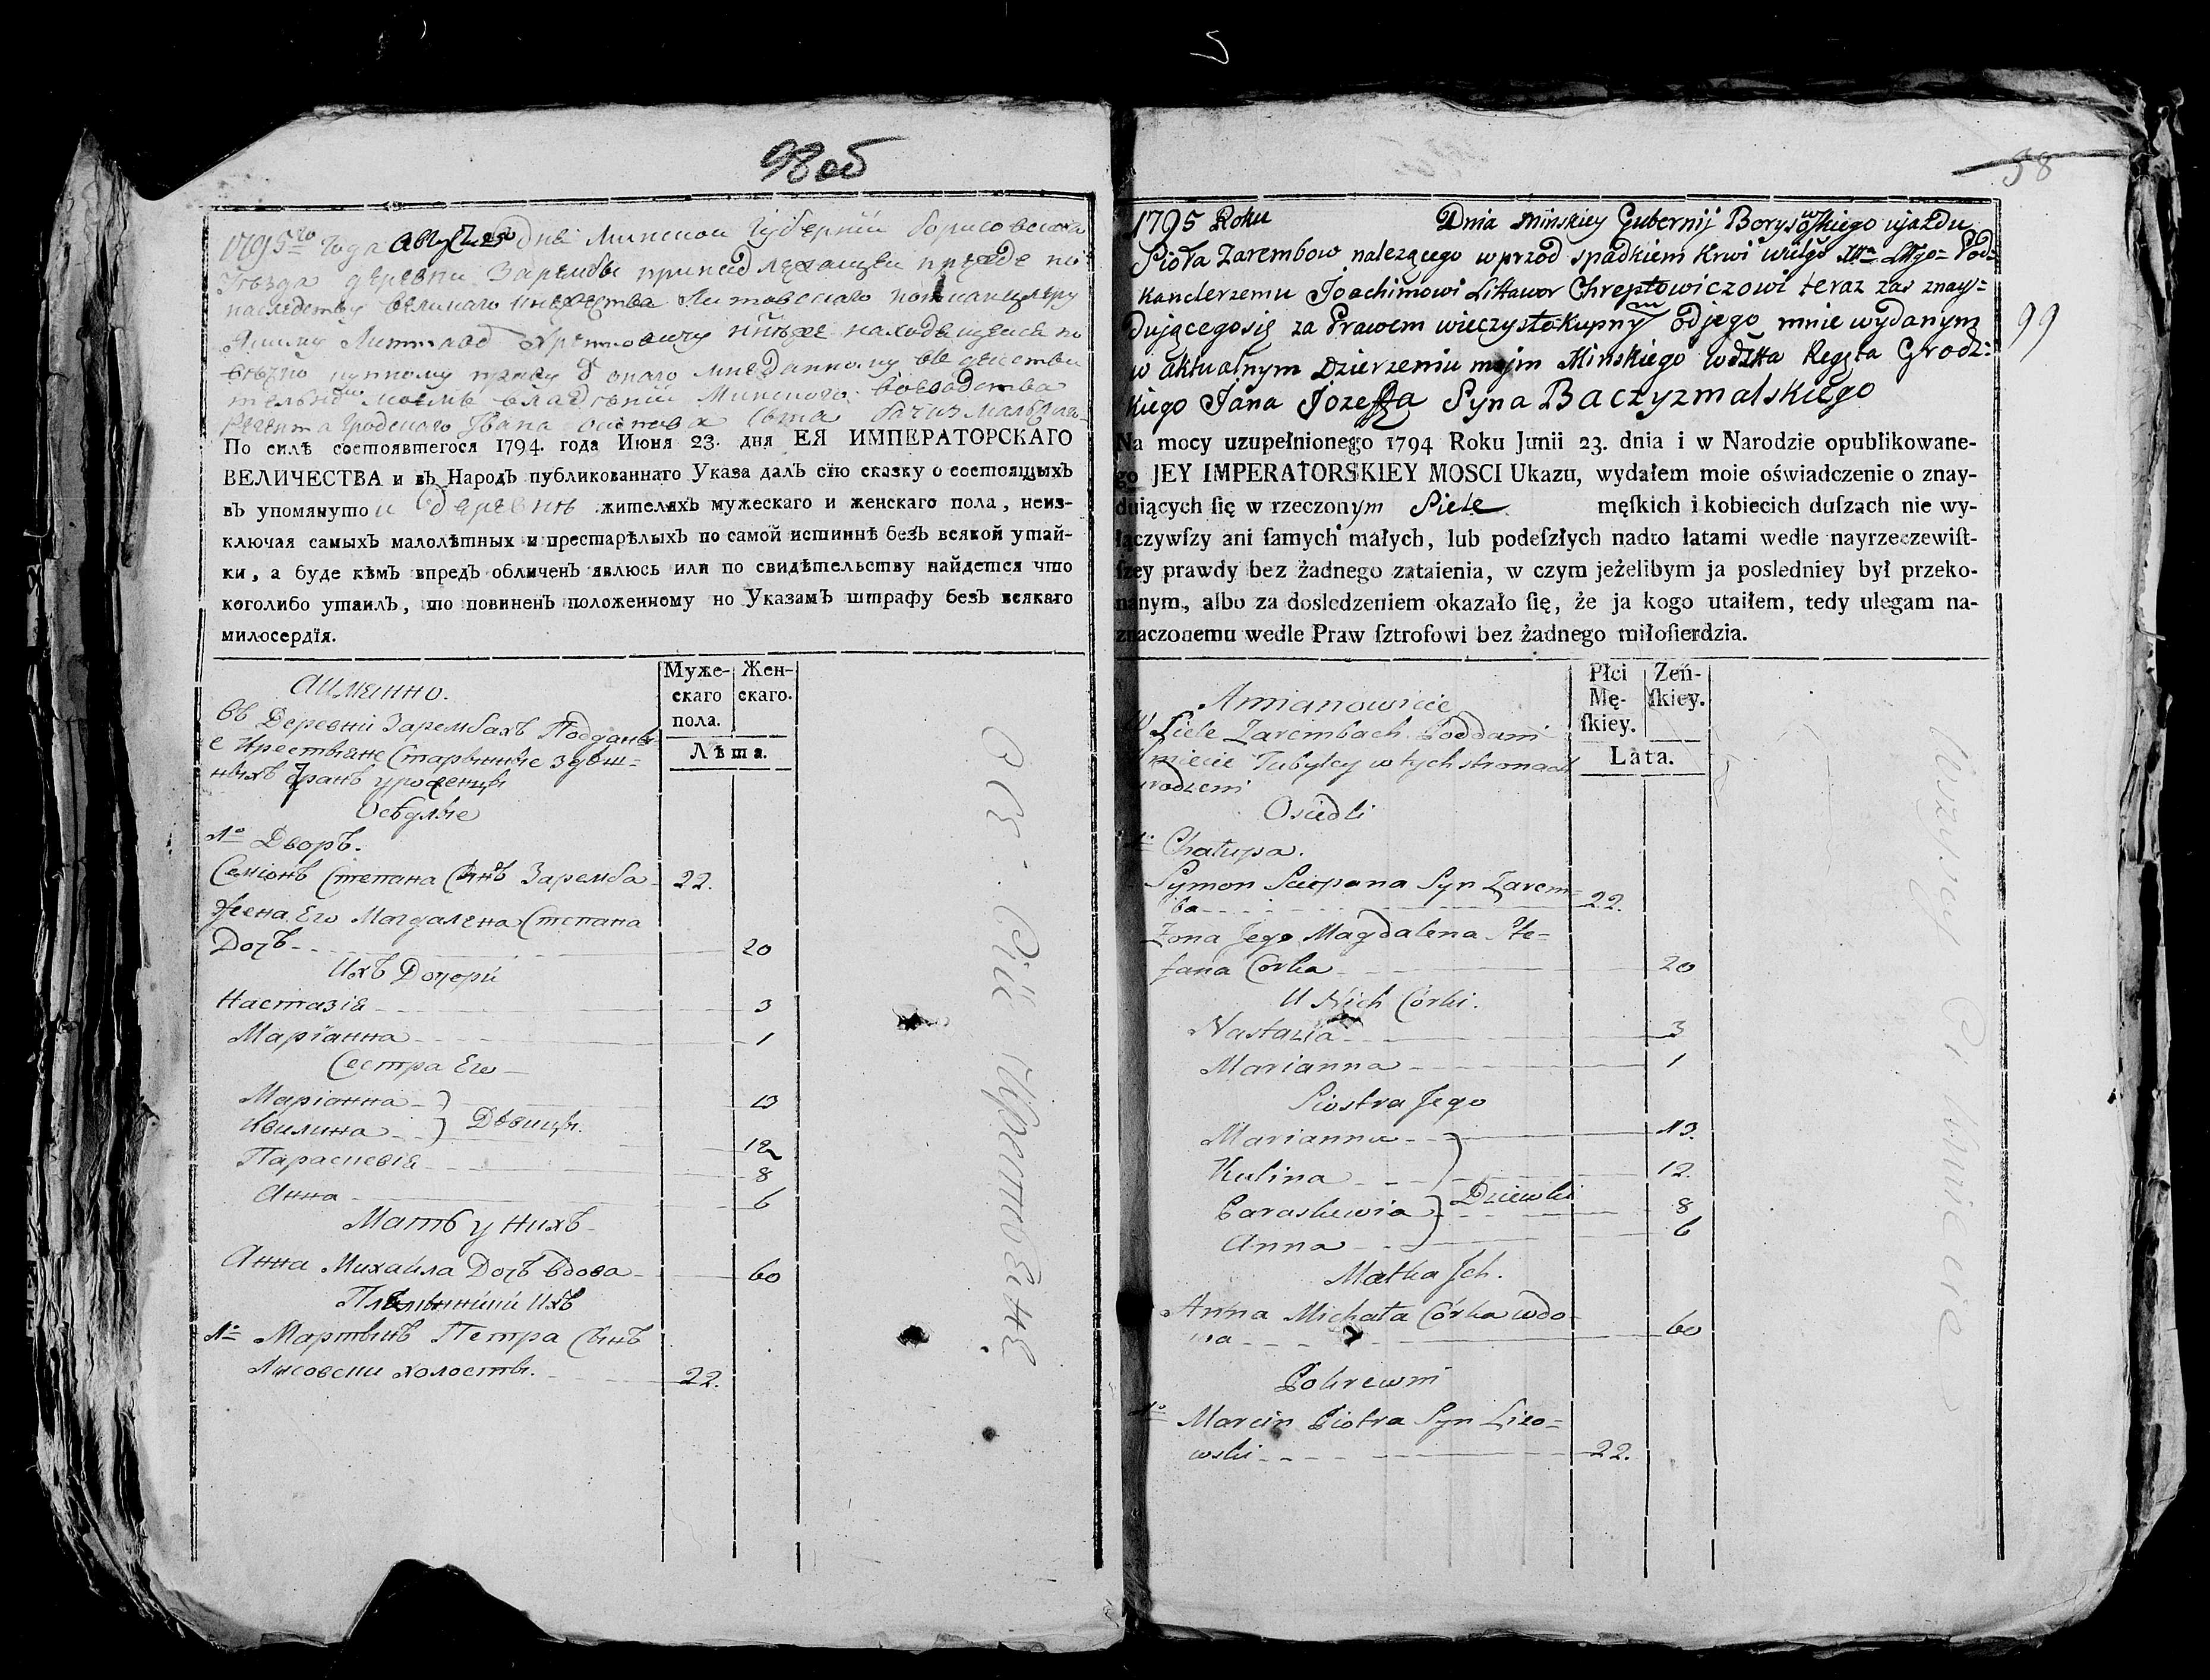 98 об
1795го года августа дня Минской Губернии Борисовскаго
уезда деревни Зарембы принадлежащей прежде по
наследству великаго княжества Литовскаго подканцлеру
Литтавор Хрептовичу ныне же находящейся по
вечно купному праву от онаго мне данному в действи
тельном моемъ владении Минского воеводства
Регента Гродскаго Ивана Осипова сына Бачизмальскаго
По силѣ состоявшегося 1794. года Июня 23. дня ЕЯ ИМПЕРАТОРСКАГО
ВЕЛИЧЕСТВА и въ Народъ публикованнаго Указа далъ сїю сказку о состоящыхъ
въ упомянутой деревне жителяхъ мужескаго и женскаго пола, неиз-
ключая самыхъ малолѣтныхъ и престарѣлыхъ по самой истиннѣ безъ всякой утай-
ки, а буде кѣмъ впредъ обличенъ явлюсь или по свидѣтельству найдется что
коголибо утаилъ, то повиненъ положенному по Указамъ штрафу безъ всякаго
милосердїя.
Муже-
скаго
пола.
Жен-
скаго.
Лѣта.
Аименно.
Въ Деревни Зарембахъ Подданы
е Крестьяне Старинные здеш=
нихъ Гранъ уроженцы
Оседлые
1º Дворъ.
Семіонъ Степана Сынъ Заремба 22.
Жена Его Магдалена Степана
Дочь 20
Ихъ Дочери
Настазія 3
Маріанна 1
Сестра Его
Маріанна 13
Квилина Девицы. 12
Параскевія 8
Анна 6
Мать у Нихъ
Анна Михайла Дочь вдова 60
Племянники Ихъ
1º Мартынъ Петра Сынъ
Лисовски холосты. 22.
крестьяне
98
99
1795 Roku Dnia Minskiey Gubernij Borysowskiego ujazdu
Sioła Zarembow nalezącego wprzod spadkiem Krwi Pod=
kanclerzemu Joachimowi Littawor Chreptowiczowi teraz zas znay=
dującegosię za Prawem wieczystokupnym odjego mnie wydanym
w aktualnym Dzierzeniu mojm Minskiego Wdztta Regęta Grodz=
kiego Jana Jozeffa Syna Baczyzmalskiego
Na mocy uzupełnionego 1794 Roku Junii 23. dnia i w Narodzie opublikowane-
go JEY IMPERATORSKIEY MOSCI Ukazu, wydałem moie oświadczenie o znay-
duiących ſię w rzeczonym Siele męſkich i kobiecich duſzach nie wy-
łączywſzy ani ſamych małych, lub podeſzłych nadto łatami wedle nayrzeczewiſt-
ſzey prawdy bez żadnego zataienia, w czym jeżelibym ja posledniey był przeko-
nanym, albo za dosledzeniem okazało ſię, że ja kogo utaiłem, tedy ulegam na-
znaczonemu wedle Praw ſztrofowi bez żadnego miłoſierdzia.
Płci
Mę-
ſkiey.
Zeń-
ſkiey.
Lata.
Amianowicie
W Siele Zarembach Poddani
Kmiecie Tubylcy w tych stronach
urodzeni
Osiedli
1º Chałupa.
Symon Sciepana Syn Zarem=
ba 22.
Zona Jego Magdalena Ste=
fana Corka 20
U Nich Córki.
Nastazia 3
Marianna 1
Siostra Jego
Marianna 13.
Kulina 12.
Paraskewia Dziewki 8
Anna 6
Matka Jch.
Anna Michała Córka wdo
wa 60
Pokrewni
1º Marcin Piotra Syn Lizo=
wski 22.